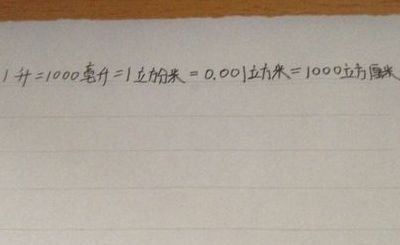 1升=1000毫升=1立方分米=0.001立方米=1000立方厘米